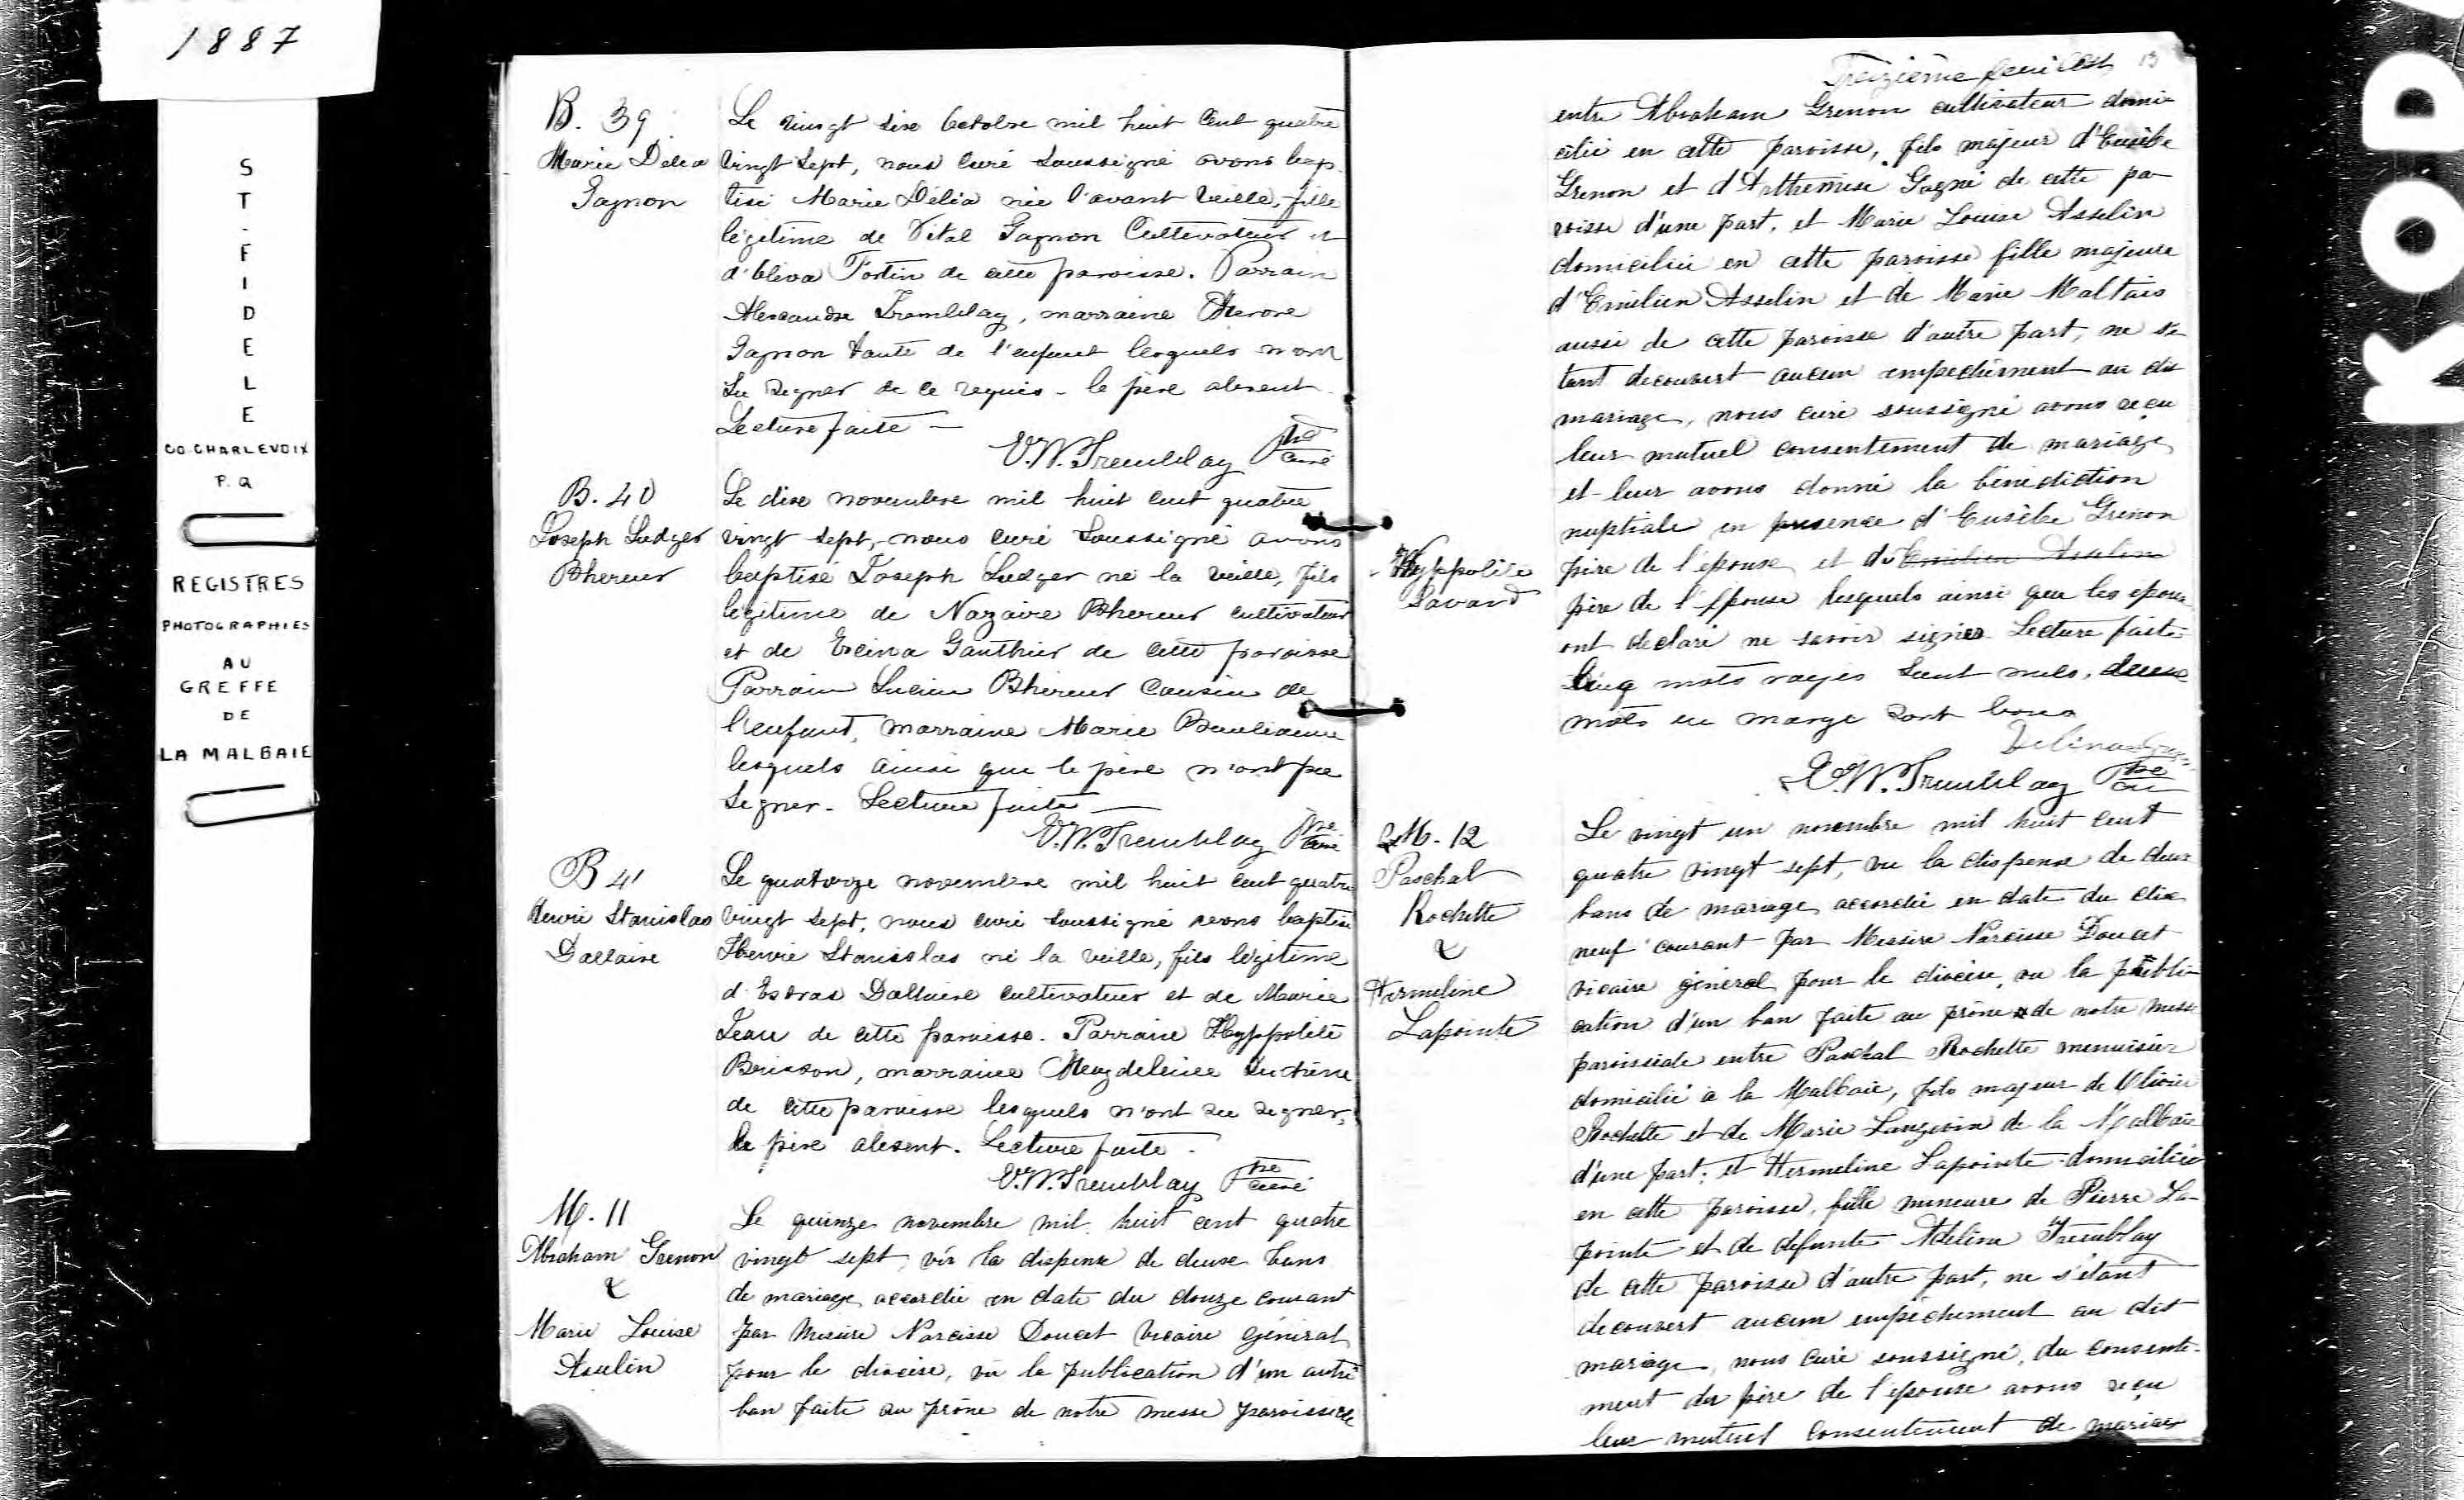 1887
ST-FIDELE
CO. CHARLEVOIX
P.Q
REGISTRES
PHOTOGRAPHIES
AU
GREFFE
DE
LA MALBAIE
B. 39
Marie Delia
Gagnon
Le vingt six Octobre mil huit cent quatre
vingt sept, nous curé soussigné avons bap
tisé Marie Délia née l'avant veille, fille
légitime de Vital Gagnon Cultivateur et
d'Oliva Fortin de cette paroisse. Parrain
Alexandre Tremblay, marraine
Gagnon tante de l'enfant lesquels n'ont
su signer de ce requis - le père absent.
Lecture faite —
V.W. Tremblay Ptre curé
B. 40
Joseph Ludger
Bhereur
Le dix novembre mil huit cent quatre
vingt sept, nous curé soussigné avons
baptisé Joseph Ludger né la veille, fils
légitime de Nazaire Bhereur cultivateur
et de Gauthier de cette paroisse
Parrain Lucien Bhereur Cousin de
l'enfant, marraine Marie
lesquels ainsi que le père n'ont pu
signer. Lecture faite —
V.W. Tremblay Ptre curé
B 41
Henri Stanislas
Dallaire
Le quatorze novembre mil huit cent quatre
vingt sept, nous curé soussigné avons baptisé
Henri Stanislas né la veille, fils légitime
d'Esdras Dallaire cultivateur et de Marie
Jean de cette paroisse. Parrain Hyppolite
Brisson, marraine Magdeleine
de cette paroisse lesquels n'ont su signer,
le père absent. Lecture faite.
V.W. Tremblay Ptre curé
M. 11
Abraham Grenon
&
Marie Louise
Asselin
Le quinze novembre mil huit cent quatre
vingt sept, vu la dispense de deux bans
de mariage accordée en date du douze courant
par Messire Narcisse Doucet Vicaire général
pour le diocèse, vu la publication d'un autre
ban faite au prône de notre messe paroissiale
Treizième feuillet 13
entre Abraham Grenon cultivateur domi
cilié en cette paroisse, fils majeur d'Eusèbe
Grenon et d'Arthemise Gagné de cette pa
roisse d'une part, et Marie Louise Asselin
domiciliée en cette paroisse fille majeure
d'Emilien Asselin et de Marie Maltais
aussi de cette paroisse d'autre part, ne s'é
tant découvert aucun empechement au dit
mariage, nous curé soussigné avons reçu
leur mutuel consentement de mariage
et leur avons donné la bénédiction
nuptiale en présence d'Eusèbe Grenon
père de l'épouse et d'Emilien Asselin
Hyppolite
Savard
père de l'épouse lesquels ainsi que les époux
ont déclaré ne savoir signer. Lecture faite
Cinq mots rayés sont nuls, deux
mots en marge sont bons
V.W. Tremblay Ptre
M. 12
Paschal
Rochette
&
Hermeline
Lapointe
Le vingt un novembre mil huit cent
quatre vingt sept, vu la dispense de deux
bans de mariage accordée en date du dix
neuf courant par Messire Narcisse Doucet
vicaire général pour le diocèse, vu la publi
cation d'un ban faite au prône de notre messe
paroissiale entre Paschal Rochette menuisier
domicilié à la Malbaie, fils majeur de Olivier
Rochette et de Marie Langevin de la Malbaie
d'une part; et Hermeline Lapointe domiciliée
en cette paroisse, fille mineure de Pierre La-
pointe et de defunte Adeline Tremblay
de cette paroisse d'autre part, ne s'étant
découvert aucun empêchement au dit
mariage, nous curé soussigné, du consente-
ment du père de l'épouse avons reçu
leur mutuel consentement de mariage
KOD